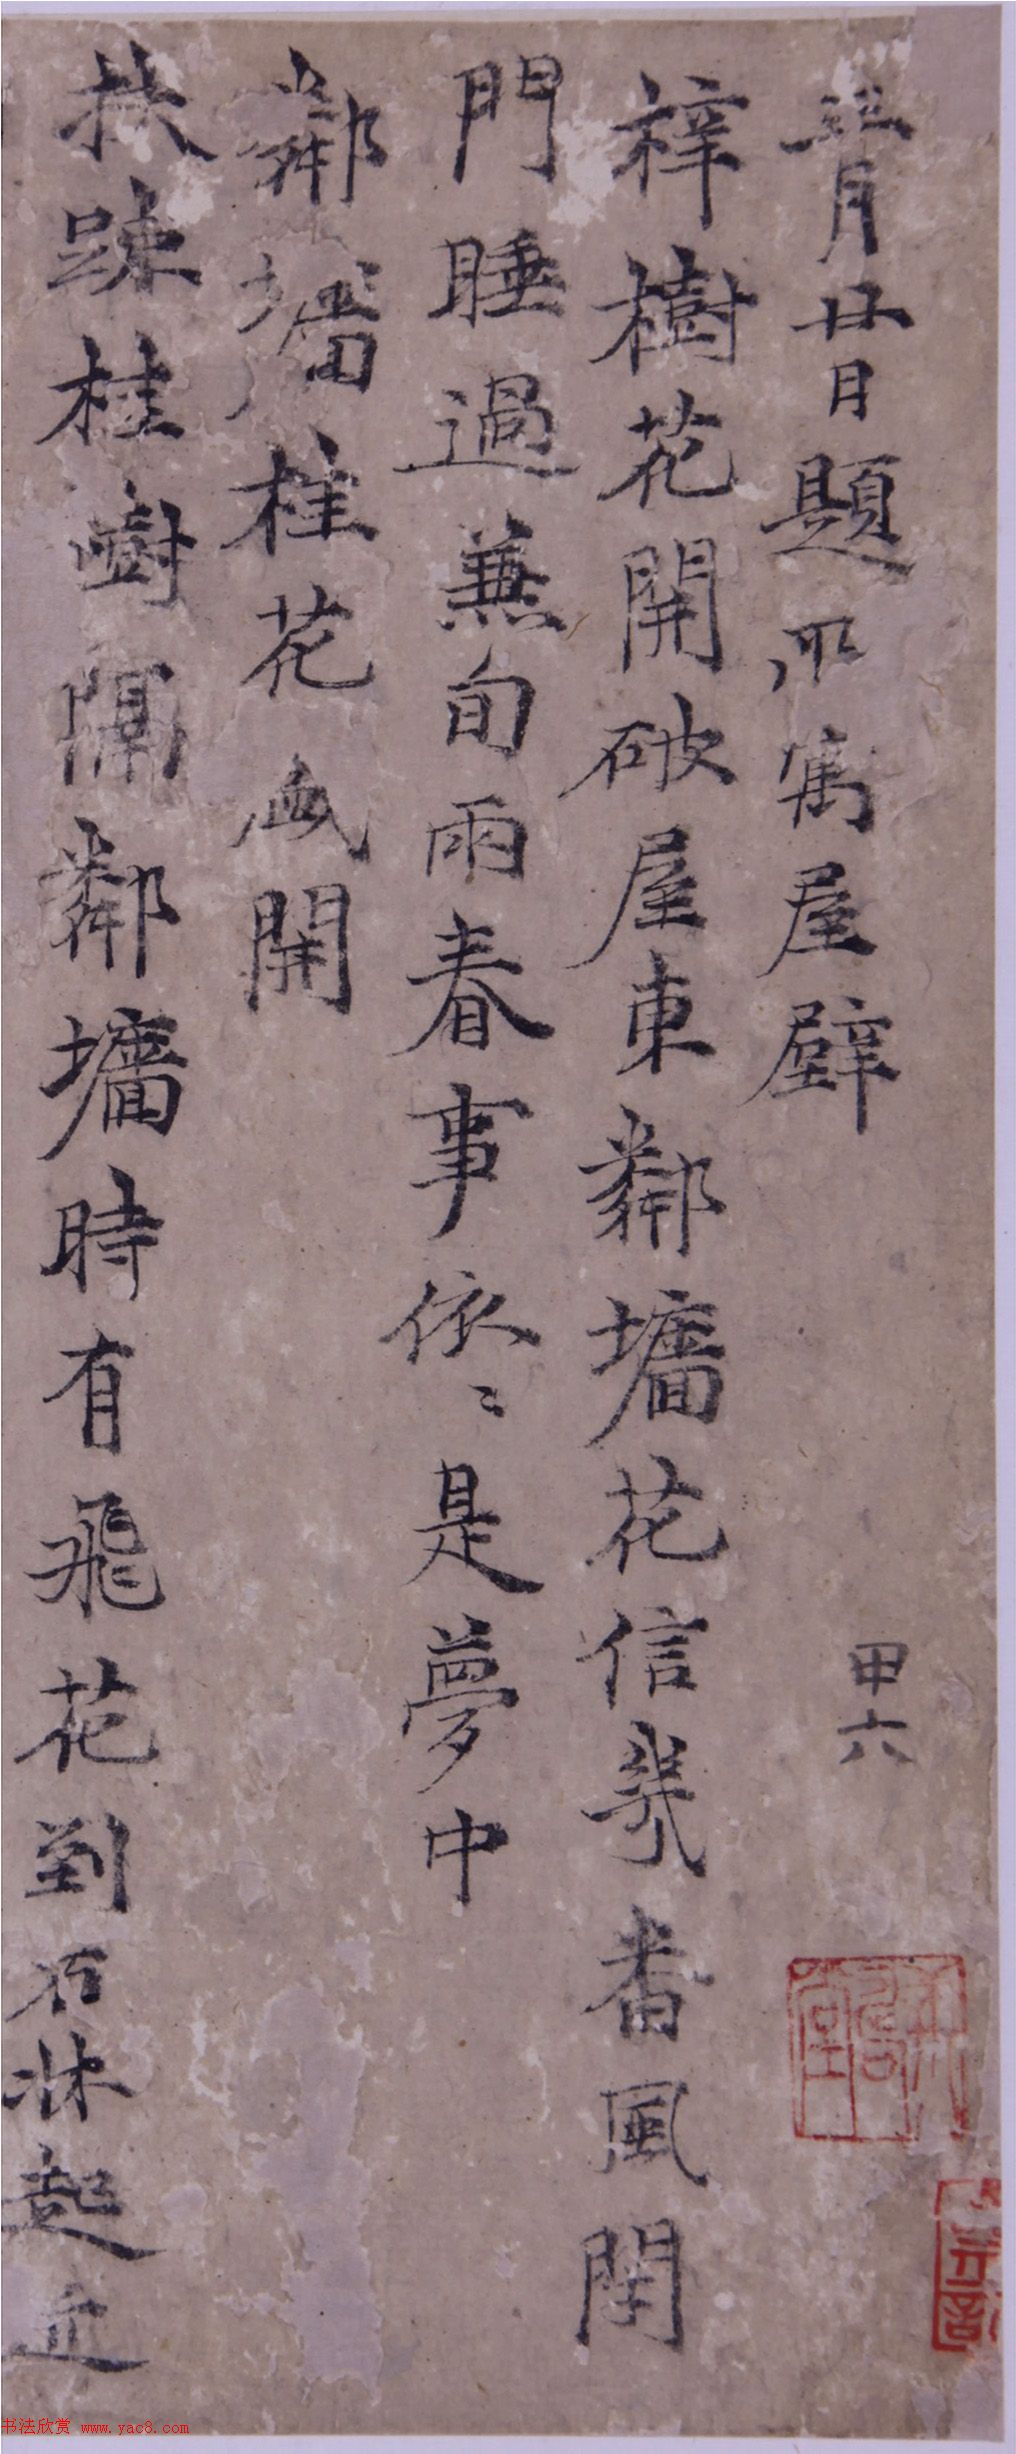 三月廿日題所寓屋壁
梓樹花開破屋東鄰墻花信幾番風閉
門睡過兼旬雨春事依〻是夢中
鄰墻桂花盛開
扶踈桂樹隔鄰墻時有飛花到石牀起近
甲六
书法欣赏 www.yac8.com